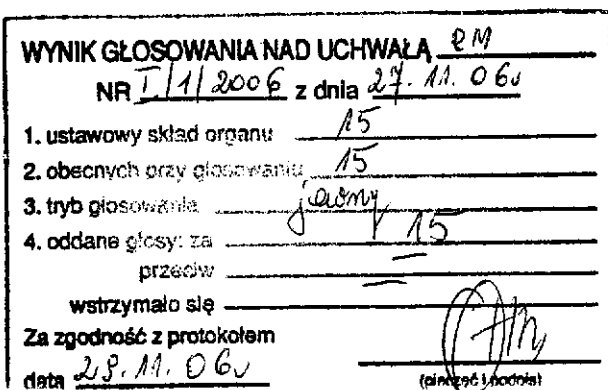 WYNIK GŁOSOWANIA NAD UCHWAŁĄ RM
NR I/1/2006 z dnia 27.11.06r
1. ustawowy skład organu 15
2. obecnych przy głosowaniu 15
3. tryb głosowania jawny
4. oddane głosy: za 15
przeciw —
wstrzymało się —
Za zgodność z protokołem
data 29.11.06r
(pieczęć i podpis)